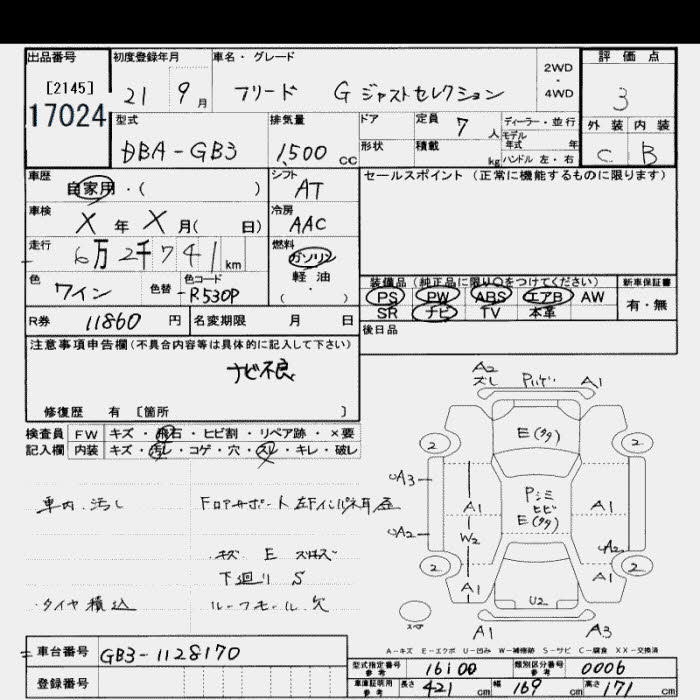 出品番号
[2145]
17024
初度登録年月
21 9 月
車名・グレード
フリード G ジャストセレクション
2WD
・
4WD
評価点
3
外装 内装
C B
型式
DBA-GB3
排気量
1,500 CC
ドア
形状
定員 7 人
積載 kg
ディーラー・並行
モデル年式 年
ハンドル 左・右
車歴
自家用・( )
シフト
AT
車検
X 年 X 月( 日)
冷房
AAC
走行
6万2千741 km
燃料
ガソリン
軽油
( ・ )
色
ワイン
色替
色コード
R530P
R券 11860 円
名変期限 月 日
セールスポイント (正常に機能するものに限ります)
装備品 (純正品に限り○をつけてください)
PS PW ABS エアB AW
SR ナビ TV 本革
新車保証書
有・無
後日品
注意事項申告欄(不具合内容等は具体的に記入して下さい)
ナビ不良
修復歴 有 〔箇所 〕
検査員 FW キズ・飛石・ヒビ割・リペア跡・×要
記入欄 内装 キズ・汚レ・コゲ・穴・スレ・キレ・破レ
車内汚レ
キズ E
下廻り S
タイヤ積込
ルーフモール欠
A2
ズレ
A1
2
E(タタ)
2
A3
A1
A1
Pシミ
ヒビ
E(タタ)
A2
W2
A2
2
A1
A1
2
U2
A1
A3
スペア
A-キズ E-エクボ U-凹み W-補修跡 S-サビ C-腐食 XX-交換済
車台番号 GB3-1128170
登録番号
型式指定番号 参考 16100
類別区分番号 参考 0006
車庫証明用 参考 長さ 421 cm 幅 169 cm 高さ 171 cm